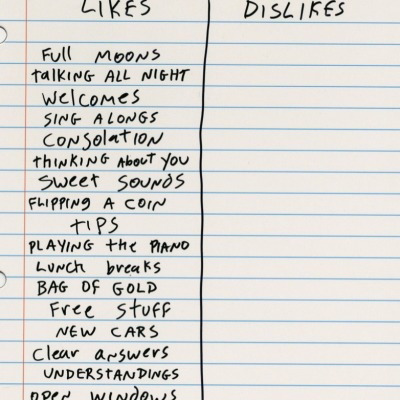 LIKES DISLIKES
Full MOONS
talkING ALL NIGHT
Welcomes
SING ALONGS
CONSOlatION
thINKING About YOU
Sweet SOUNDS
FLIPPING A COIN
tIPS
PLAYING the PIANO
LUNch breaks
BAG OF GOLD
Free Stuff
NEW CARS
Clear answers
UNDERSTANDINGS
OPEN WINDOWS